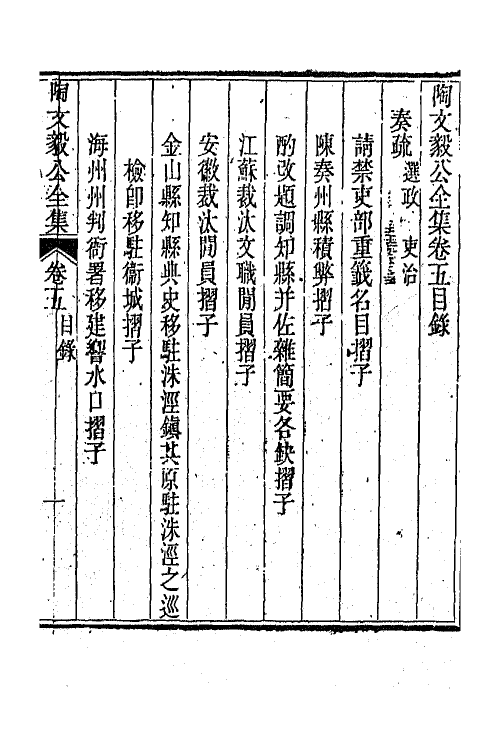 陶文毅公全集卷五目錄
奏疏 選政 吏治
請禁吏部重籤名目摺子
陳奏州縣積弊摺子
酌改題調知縣并佐雜簡要各缺摺子
江蘇裁汰文職閒員摺子
安徽裁汰閒員摺子
金山縣知縣典史移駐洙涇鎮其原駐洙涇之巡
檢卽移駐衞城摺子
海州州判衙署移建響水口摺子
陶文毅公全集 卷五 目錄 一